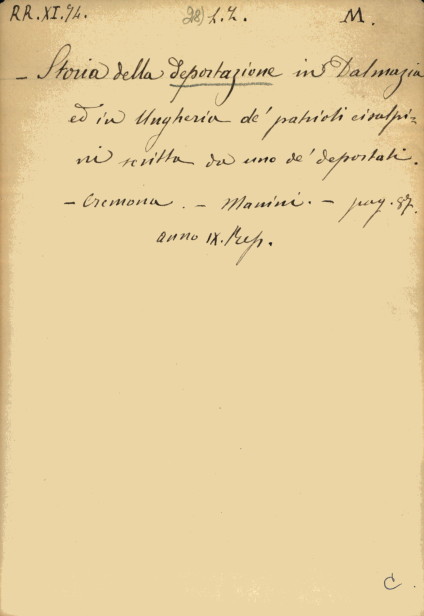 RR.XI.74. 28) L.L. M.
- Storia della deportazione in Dalmazia
ed in Ungheria de' patrioti cisalpi-
ni scritta da uno de' deportati.
- Cremona. - Manini. - pag. 87.
anno IX. Rep.
C.